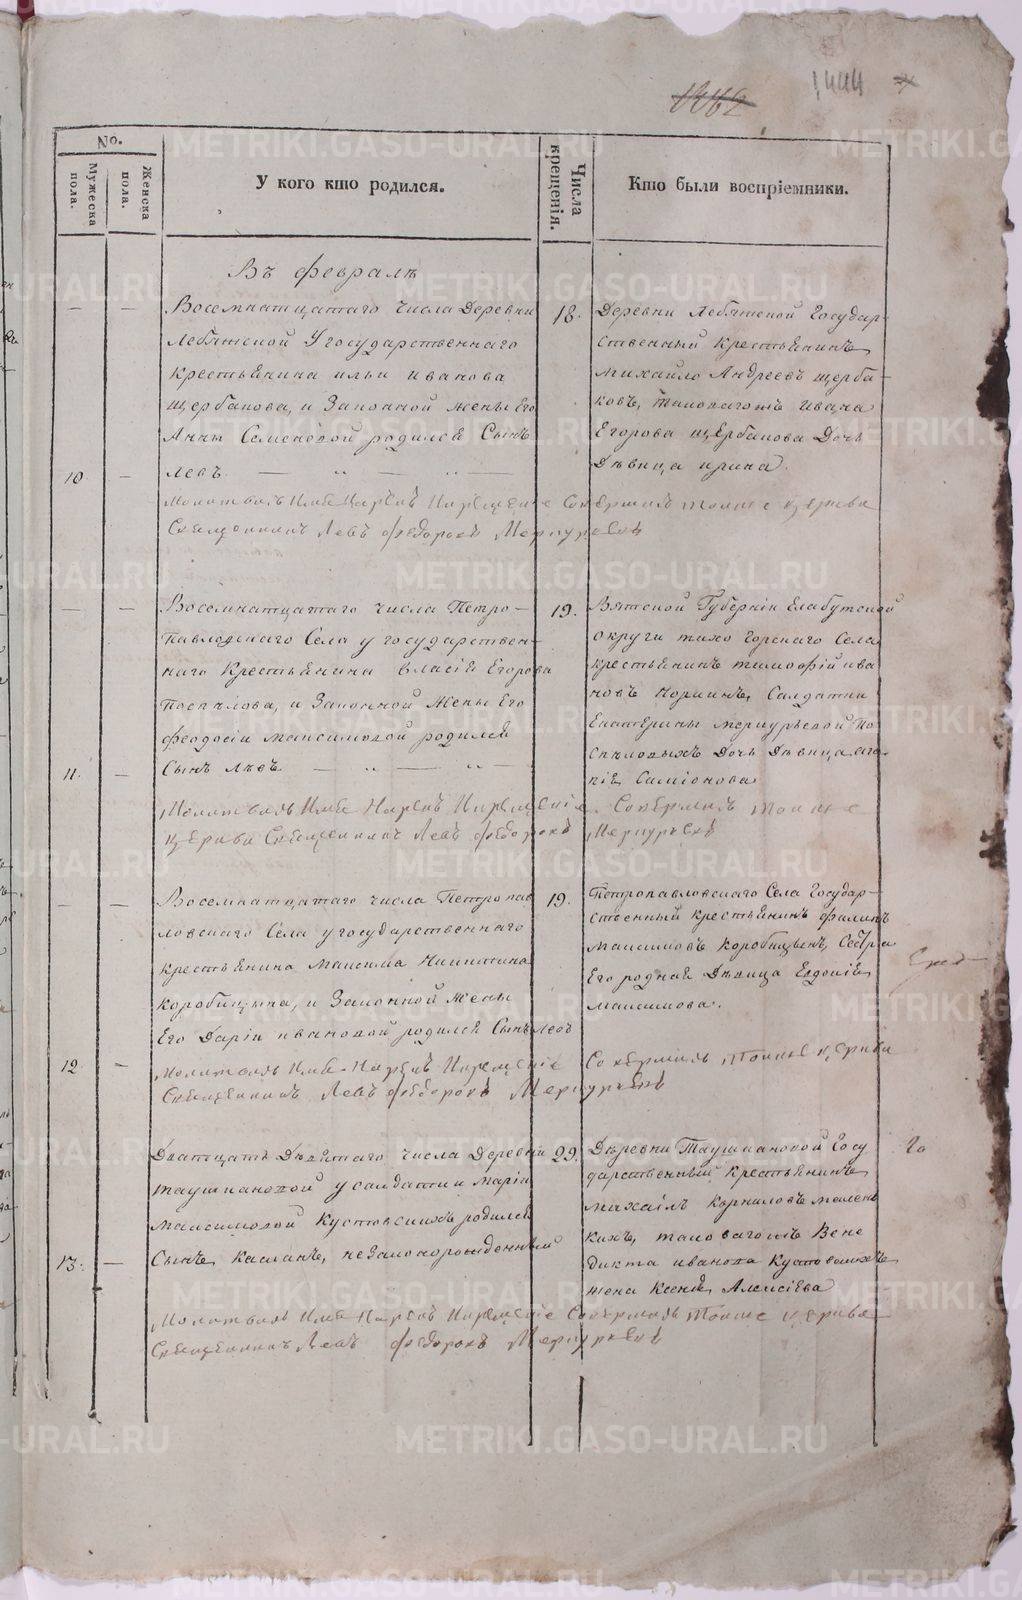 1444
No.
Мужеска пола.
Женска пола.
У кого кто родился.
Числа крещенія.
Кто были воспріемники.
Въ февралѣ
Восемнатцатаго числа Деревни
Лебяжской У государственнаго
крестьянина ильи иванова
щербакова, и Законной жены Его
Анны Семеновой родился Сынъ
10 — Левъ
18.
Деревни Лебяжской Государ-
ственный крестьянинъ
михайло Андреевъ щерба-
ковъ, таковагожъ ивана
Егорова щербакова Дочь
Дѣвица ирина.
Молитвовъ Имѣ Нарекъ И крещение Совершилъ тоижѣ церкви
Священникъ Левъ Федоровъ Меркурьевъ
Восемнатцатаго числа Петро-
павловскаго Села у государствен-
наго Крестьянина власія Егорова
Поспѣлова, и Законной жены Его
феодосіи максимовой родился
11. — Сынъ Левъ
19.
Вятской Губерніи Елабужской
округи тихо горскаго Села
крестьянинъ тимофій ива
новъ, Салдатки
Екатерины меркурьевой По
спѣловыхъ Дочь Дѣвица ага
пія Симіонова
Молитвовъ Имѣ Нарекъ И крещеніе Совершилъ тоижѣ
церкви Священникъ Левъ Федоровъ Меркурьевъ
Восемнатцатаго числа Петропав
ловскаго Села у государственнаго
крестьянина максима Никитина
коробицына, и Законной жены
Его Дарiи ивановой родился Сынъ Левъ
12. —
19.
Петропавловскаго Села Государ-
ственный крестьянинъ филипъ
максимовъ коробицынъ, Сестра
Его родная Дѣвица Евдокія
максимова.
Молитвовъ Имѣ Нарекъ И крещеніе Совершилъ тоижѣ церкви
Священникъ Левъ Федоровъ Меркурьевъ
Дватцать Девятаго числа Деревни
таушкановой у солдатки Маріи
максимовой Кустовскихъ родился
13. — Сынъ касіанъ, незаконорожденный
29.
Деревни Таушкановой Госу
дарственный Крестьянинъ
михаілъ Корниловъ мален
кихъ, таковагожъ Вене
дикта иванова Кустовскихъ
жена Ксенія Алексіева
Молитвовъ Имѣ Нарекъ И крещеніе Совершилъ тоижѣ церкви
Священникъ Левъ Федоровъ Меркурьевъ
METRIKI.GASO-URAL.RU